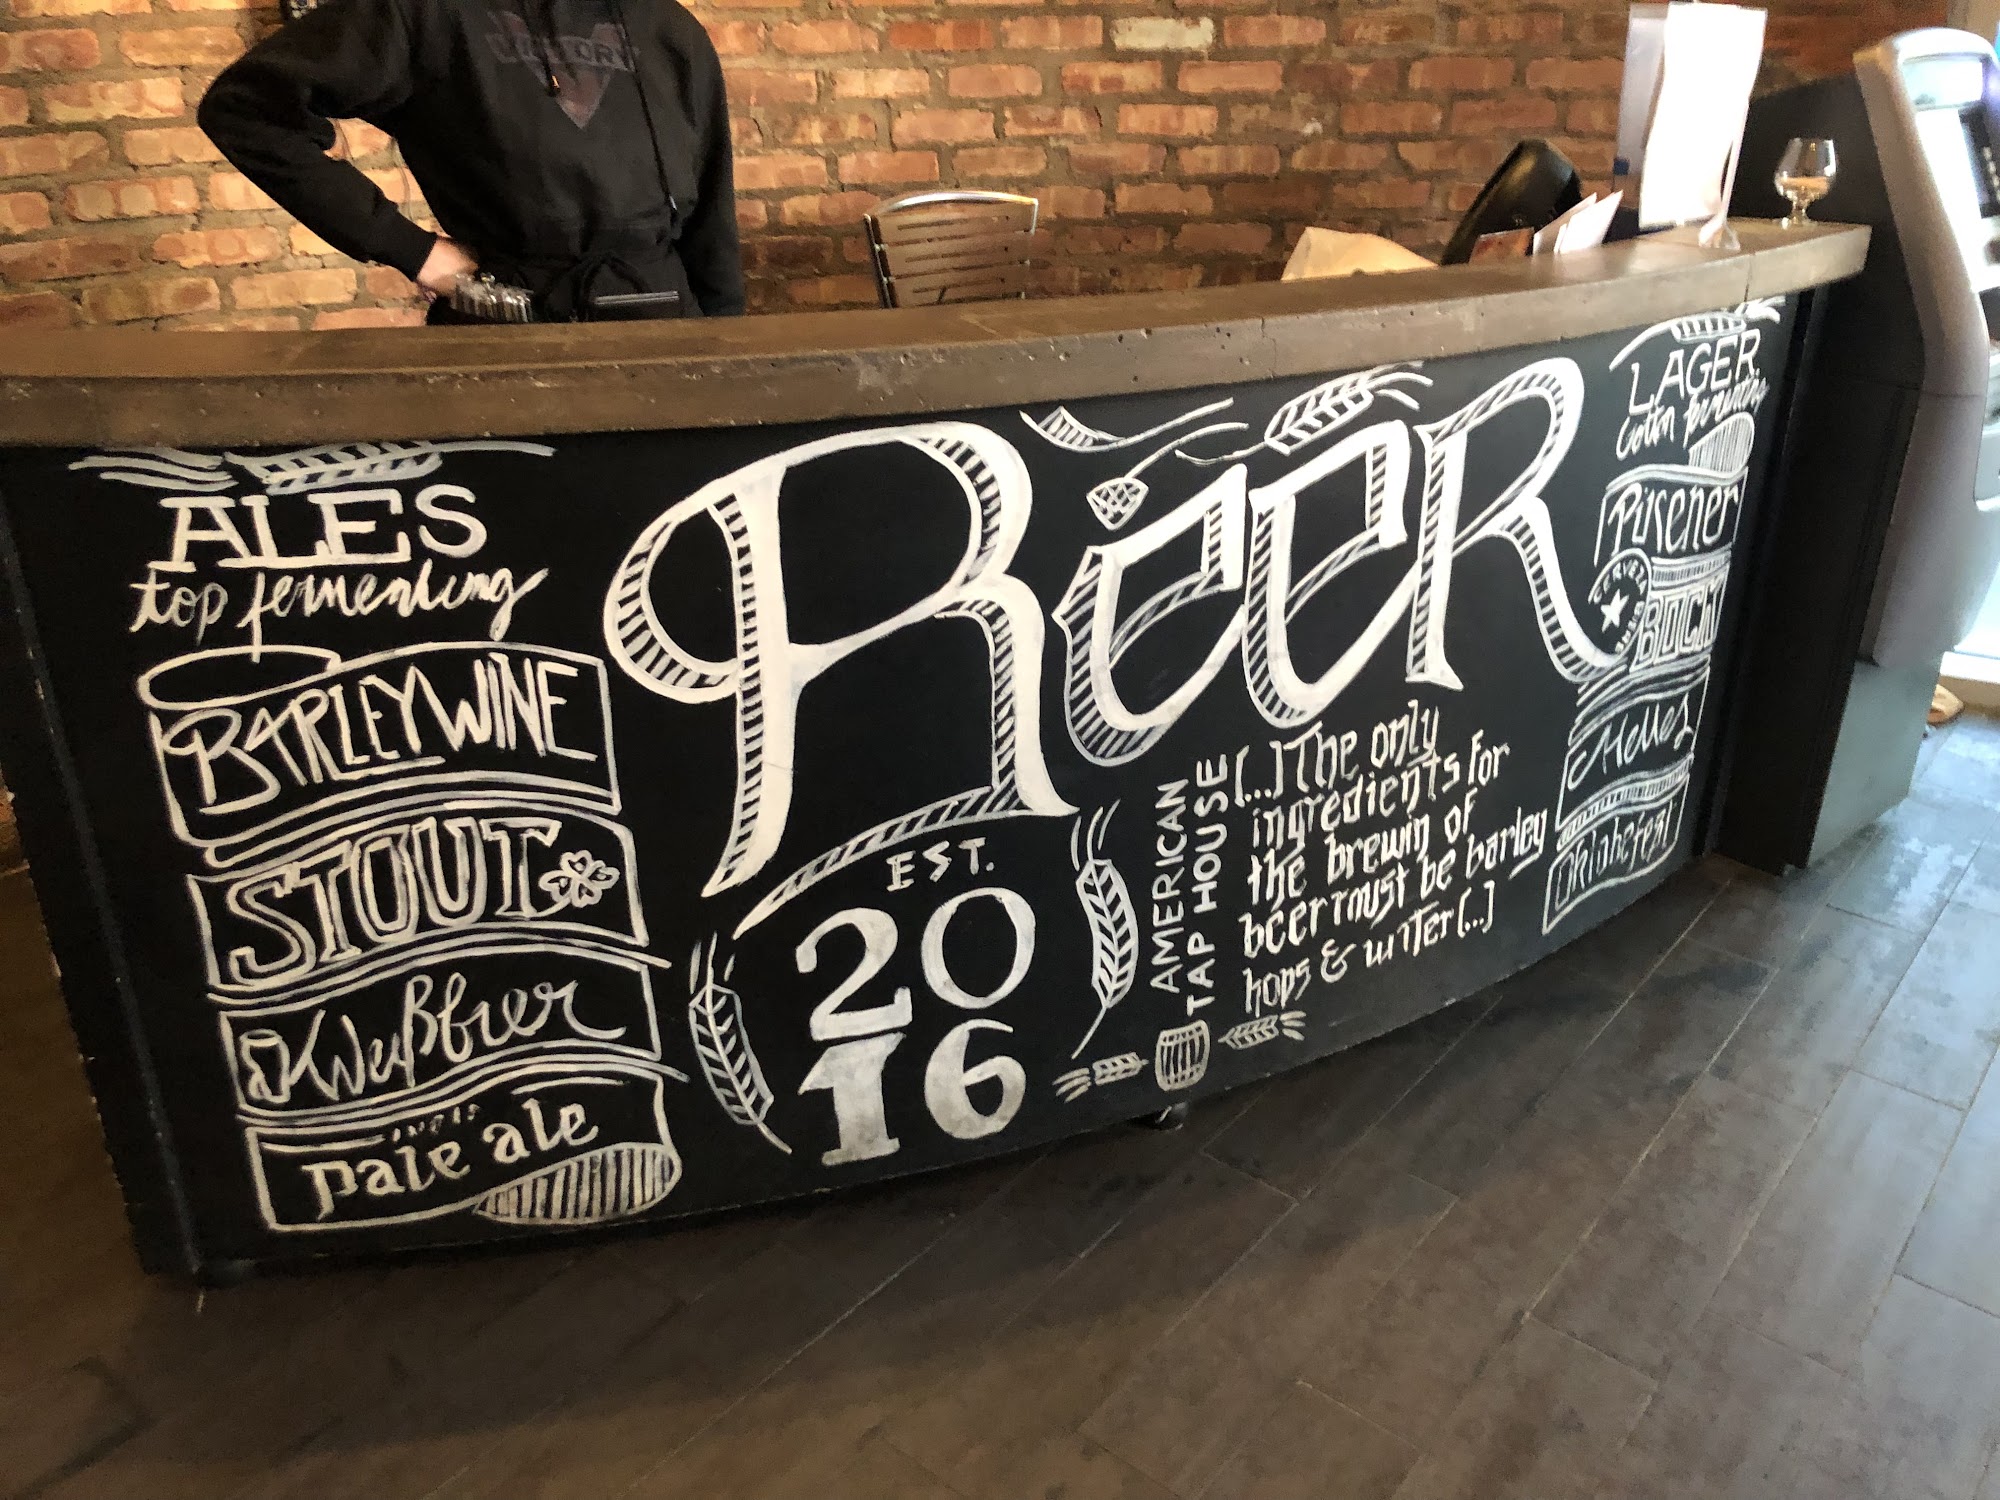 ALES
top fermenting
BARLEYWINE
STOUT
Weißbier
pale ale
BEER
EST.
20
16
AMERICAN
TAP HOUSE
[...] The only
ingredients for
the brewin of
beer must be barley
hops & water [...]
LAGER
Pilsener
CERVEZA
BOCK
Helles
Oktobefest
VICTORY